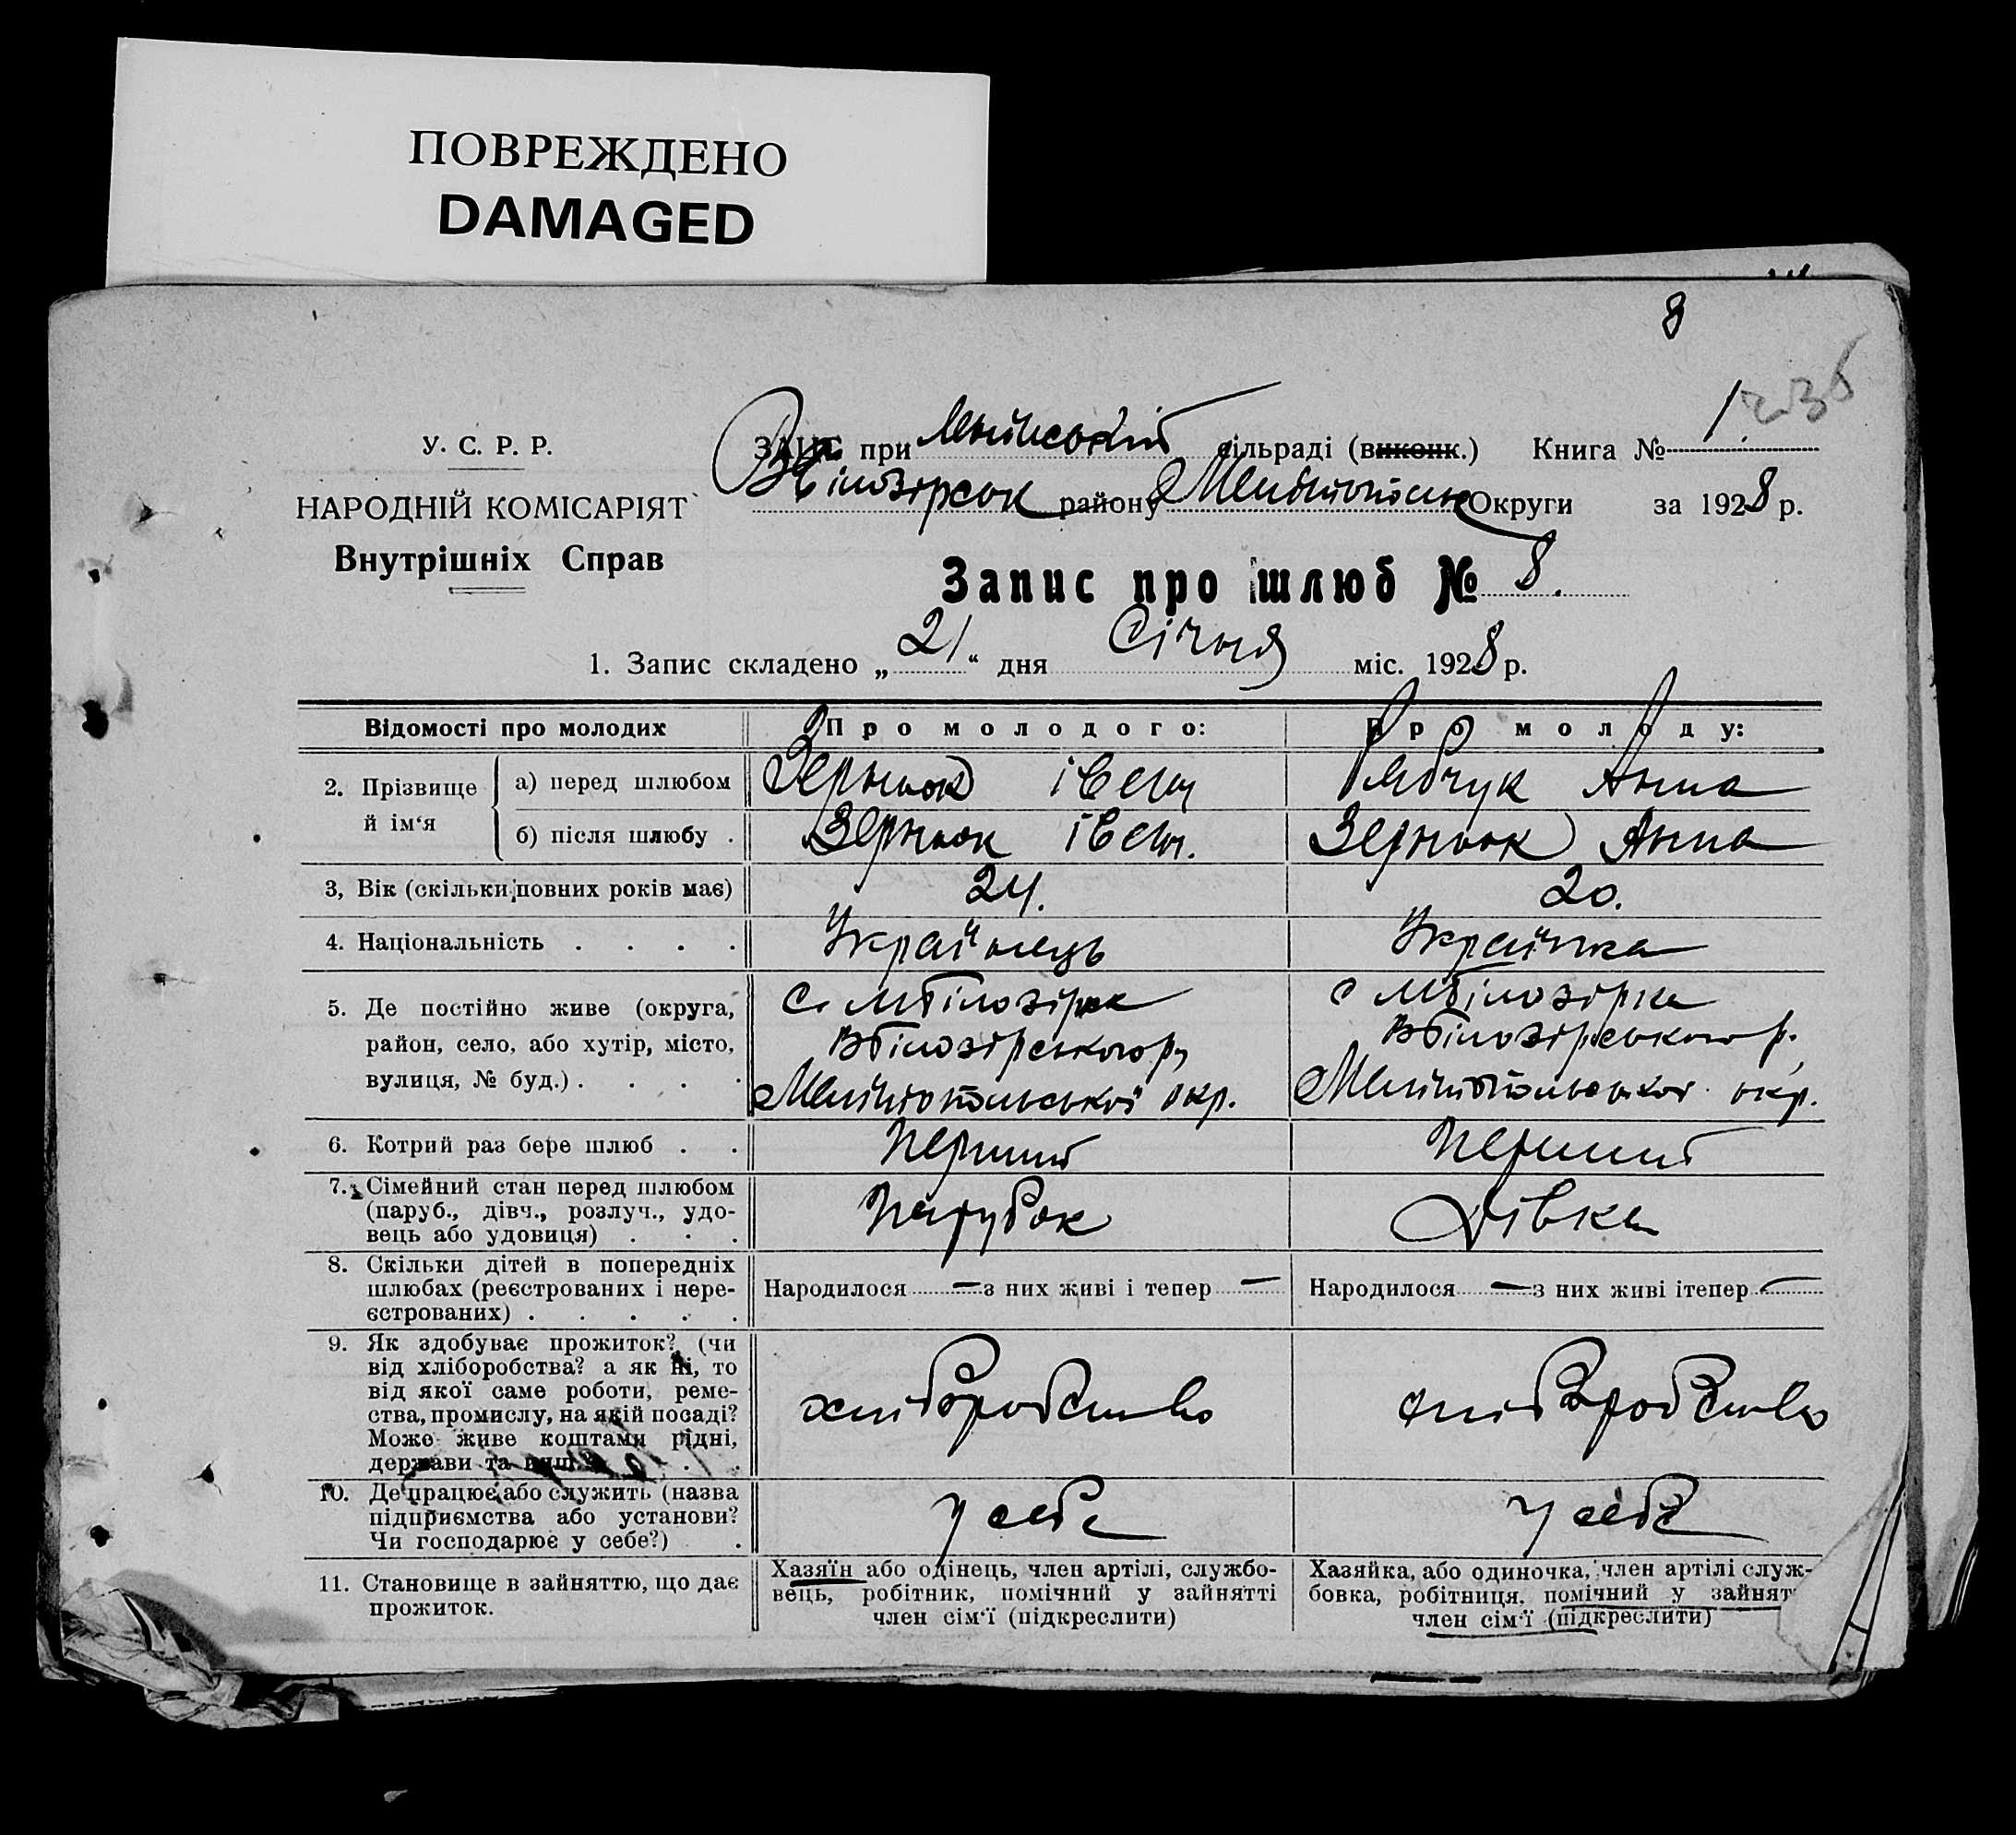 ПОВРЕЖДЕНО
DAMAGED
8
У. С. Р. Р.
НАРОДНІЙ КОМІСАРІЯТ
Внутрішніх Справ
ЗАГС при сільраді (виконк.) Книга № 1
району Округи за 1928 р.
Запис про шлюб № 8.
1. Запис складено „ 21 “ дня Січня міс. 1928 р.
Відомості про молодих Про молодого: Про молоду:
2. Прізвище й ім‘я
а) перед шлюбом Зернюк Іван Рябчук Анна
б) після шлюбу . Зернюк Іван. Зернюк Анна
3, Вік (скільки повних років має) 24. 20.
4. Національність . . . . Українець Українка
5. Де постійно живе (округа,
район, село, або хутір, місто,
вулиця, № буд.) . . . .
с. МБілозірка
ВБілозірського р,
Мелітопольської окр.
с МБілозірка
ВБілозірського р.
Мелітопольської окр.
6. Котрий раз бере шлюб . . Перший Перший
7. Сімейний стан перед шлюбом
(паруб., дівч., розлуч., удо-
вець або удовиця) . . .
Парубок Дівка
8. Скільки дітей в попередніх
шлюбах (реєстрованих і нере-
єстрованих) . . . . .
Народилося — з них живі і тепер — Народилося — з них живі ітепер —
9. Як здобуває прожиток? (чи
від хліборобства? а як ні, то
від якої саме роботи, реме-
ства, промислу, на якій посаді?
Може живе коштами рідні,
держави та инш.?
хліборобство хліборобство
10. Де працює або служить (назва
підприємства або установи?
Чи господарює у себе?) .
у себе у себе
11. Становище в зайняттю, що дає
прожиток.
Хазяїн або одінець, член артілі, службо-
вець, робітник, помічний у зайнятті
член сім‘ї (підкреслити)
Хазяйка, або одиночка, член артілі служ-
бовка, робітниця, помічний у зайнят
член сім‘ї (підкреслити)